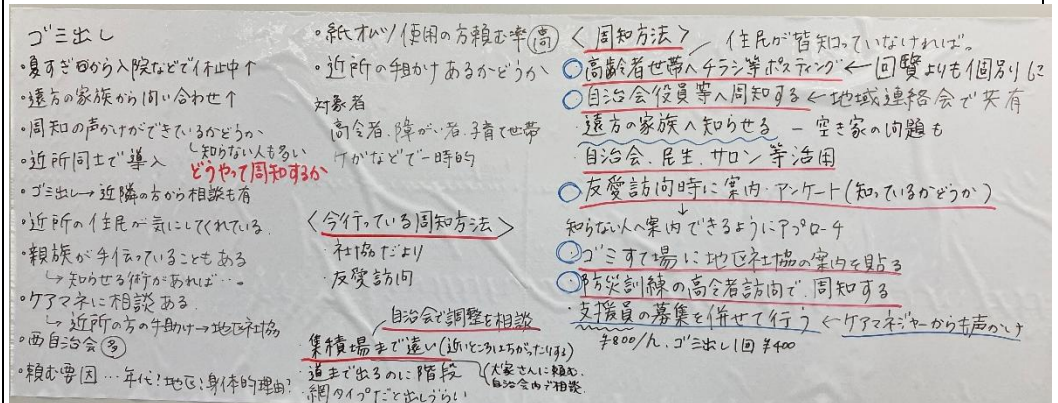 ゴミ出し
・夏すぎ日から入院などで休止中↑
・遠方の家族から問い合わせ↑
・周知の声かけができているかどうか
↳知らない人も多い
どうやって周知するか
・近所同士で導入
・ゴミ出し→近隣の方から相談も有
・近所の住民が気にしてくれている
・親族が手伝っていることもある
↳知らせる術があれば…。
・ケアマネに相談ある
↳近所の方の手助け→地区社協
・西自治会 多
・頼む要因…年代?地区?身体的理由?
・紙オムツ使用の方頼む率 高
・近所の手助けあるかどうか
対象者
高齢者、障がい者、子育て世帯
けがなどで一時的
<今行っている周知方法>
・社協だより
・友愛訪問
自治会で調整を相談
集積場まで遠い(近いところはちがったりする)
・道まで出るのに階段
大家さんに頼む、
自治会内で相談
・網タイプだと出しづらい
<周知方法>
住民が皆知っていなければ。
高齢者世帯へチラシ等ポスティング ← 回覧よりも個別に
自治会役員等へ周知する ← 地域連絡会で共有
遠方の家族へ知らせる - 空き家の問題も
・自治会、民生、サロン等活用
友愛訪問時に案内・アンケート(知っているかどうか)
↓
知らない人へ案内できるようにアプローチ
ゴミすて場に地区社協の案内を貼る
防災訓練の高令者訪問で、周知する
・支援員の募集を併せて行う ← ケアマネジャーからも声かけ
¥800/h、ゴミ出し1回 ¥400